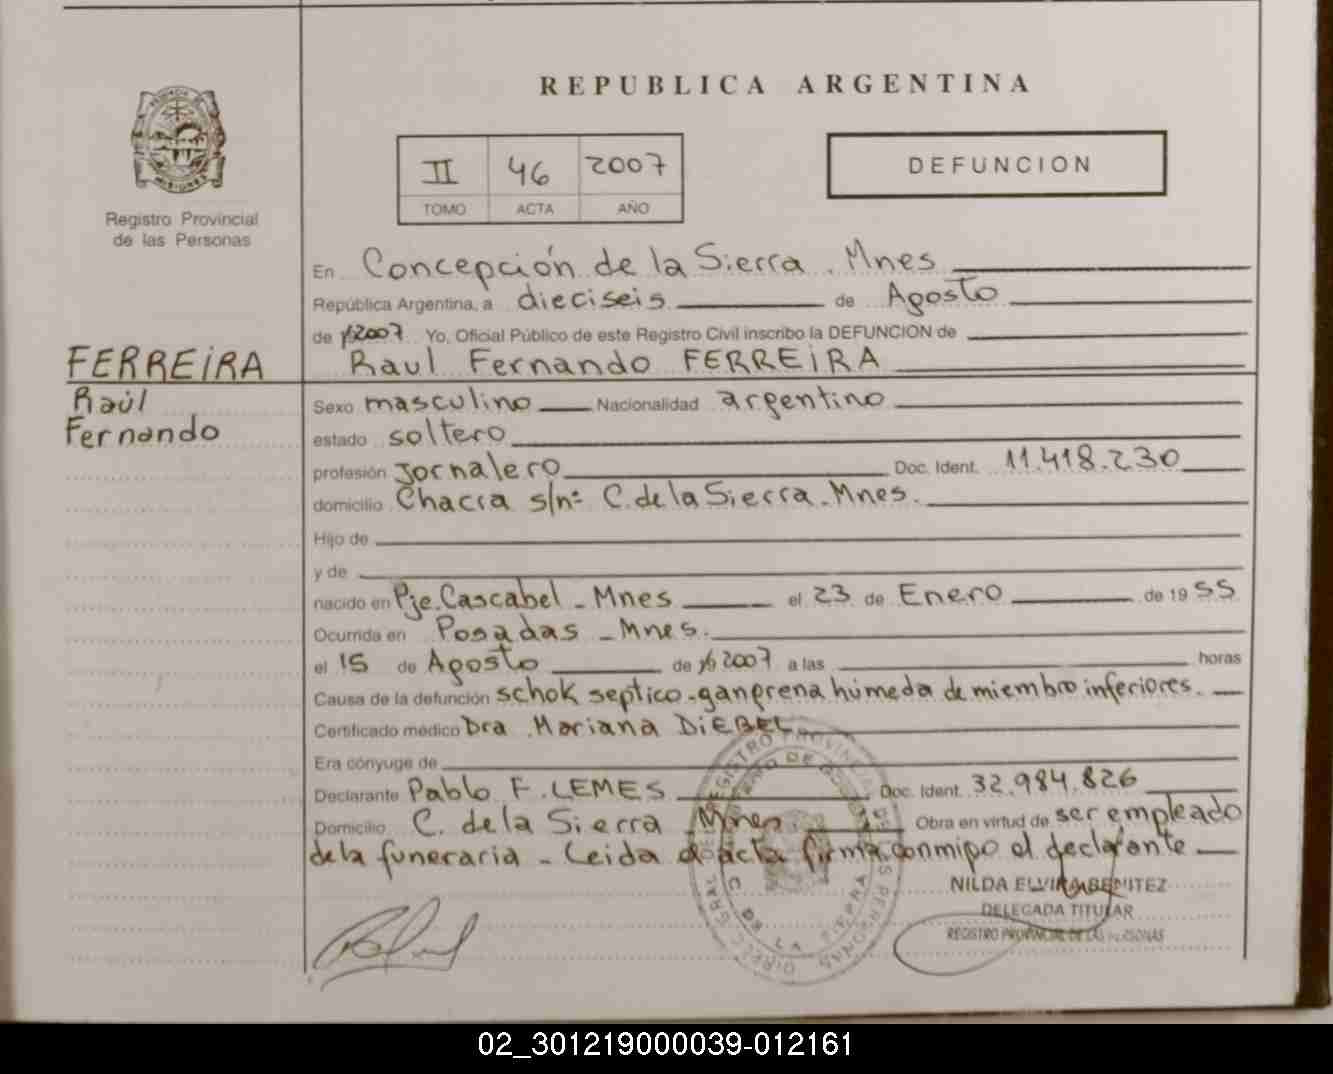 REPUBLICA ARGENTINA
II 46 2007
TOMO ACTA AÑO
DEFUNCION
PROVINCIA DE MISIONES
Registro Provincial
de las Personas
En Concepción de la Sierra. Mnes
República Argentina, a dieciseis de Agosto
de 2007 Yo, Oficial Público de este Registro Civil inscribo la DEFUNCION de
Raul Fernando FERREIRA
FERREIRA
Raúl
Fernando
Sexo masculino Nacionalidad argentino
estado soltero
profesión Jornalero Doc. Ident. 11.418.230
domicilio Chacra s/nº C. de la Sierra - Mnes.
Hijo de
y de
nacido en Pje. Cascabel - Mnes el 23 de Enero de 1955
Ocurrida en Posadas - Mnes.
el 15 de Agosto de 2007 a las horas
Causa de la defunción schok septico - gangrena húmeda de miembro inferiores.
Certificado médico Dra. Mariana DIEBEL
Era cónyuge de
Declarante Pablo F. LEMES Doc. Ident. 32.984.826
Domicilio C. de la Sierra - Mnes. Obra en virtud de ser empleado
de la funeraria - Leida el acta firma conmigo el declarante
NILDA ELVIRA BENITEZ
DELEGADA TITULAR
REGISTRO PROVINCIAL DE LAS PERSONAS
02_301219000039-012161